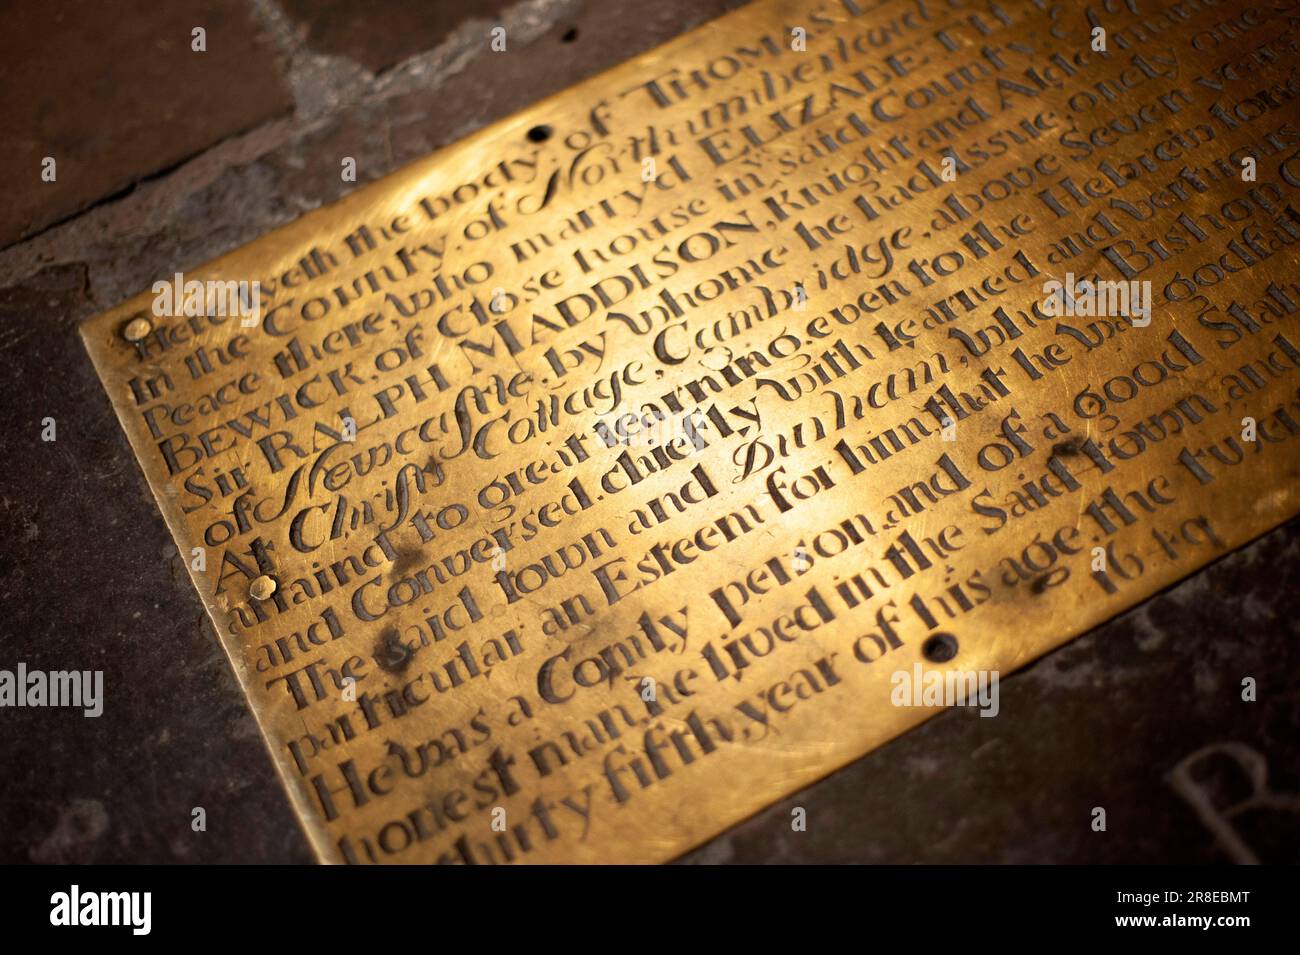 Here lyeth the body of THOMAS
In the County of Northumberland
Peace there, who marry'd ELIZABETH
BEWICK of Close house in said County
Sir RALPH MADDISON, Knight and Alderman
of Newcastle, by whome he had Issue, onely one
At Christs Collage, Cambridge, above Seven years
attaind to great learning, even to the Hebrew tong
and Conversed, chiefly with learned and vertuous
The said town and Durham, whose Bishop
particular an Esteem for him that he was godfat
He was a Comly person, and of a good Stat
honest man, he lived in the Said town, and
thirty fifth, year of his age. the
1649
R
alamy
Image ID: 2R8EBMT
www.alamy.com